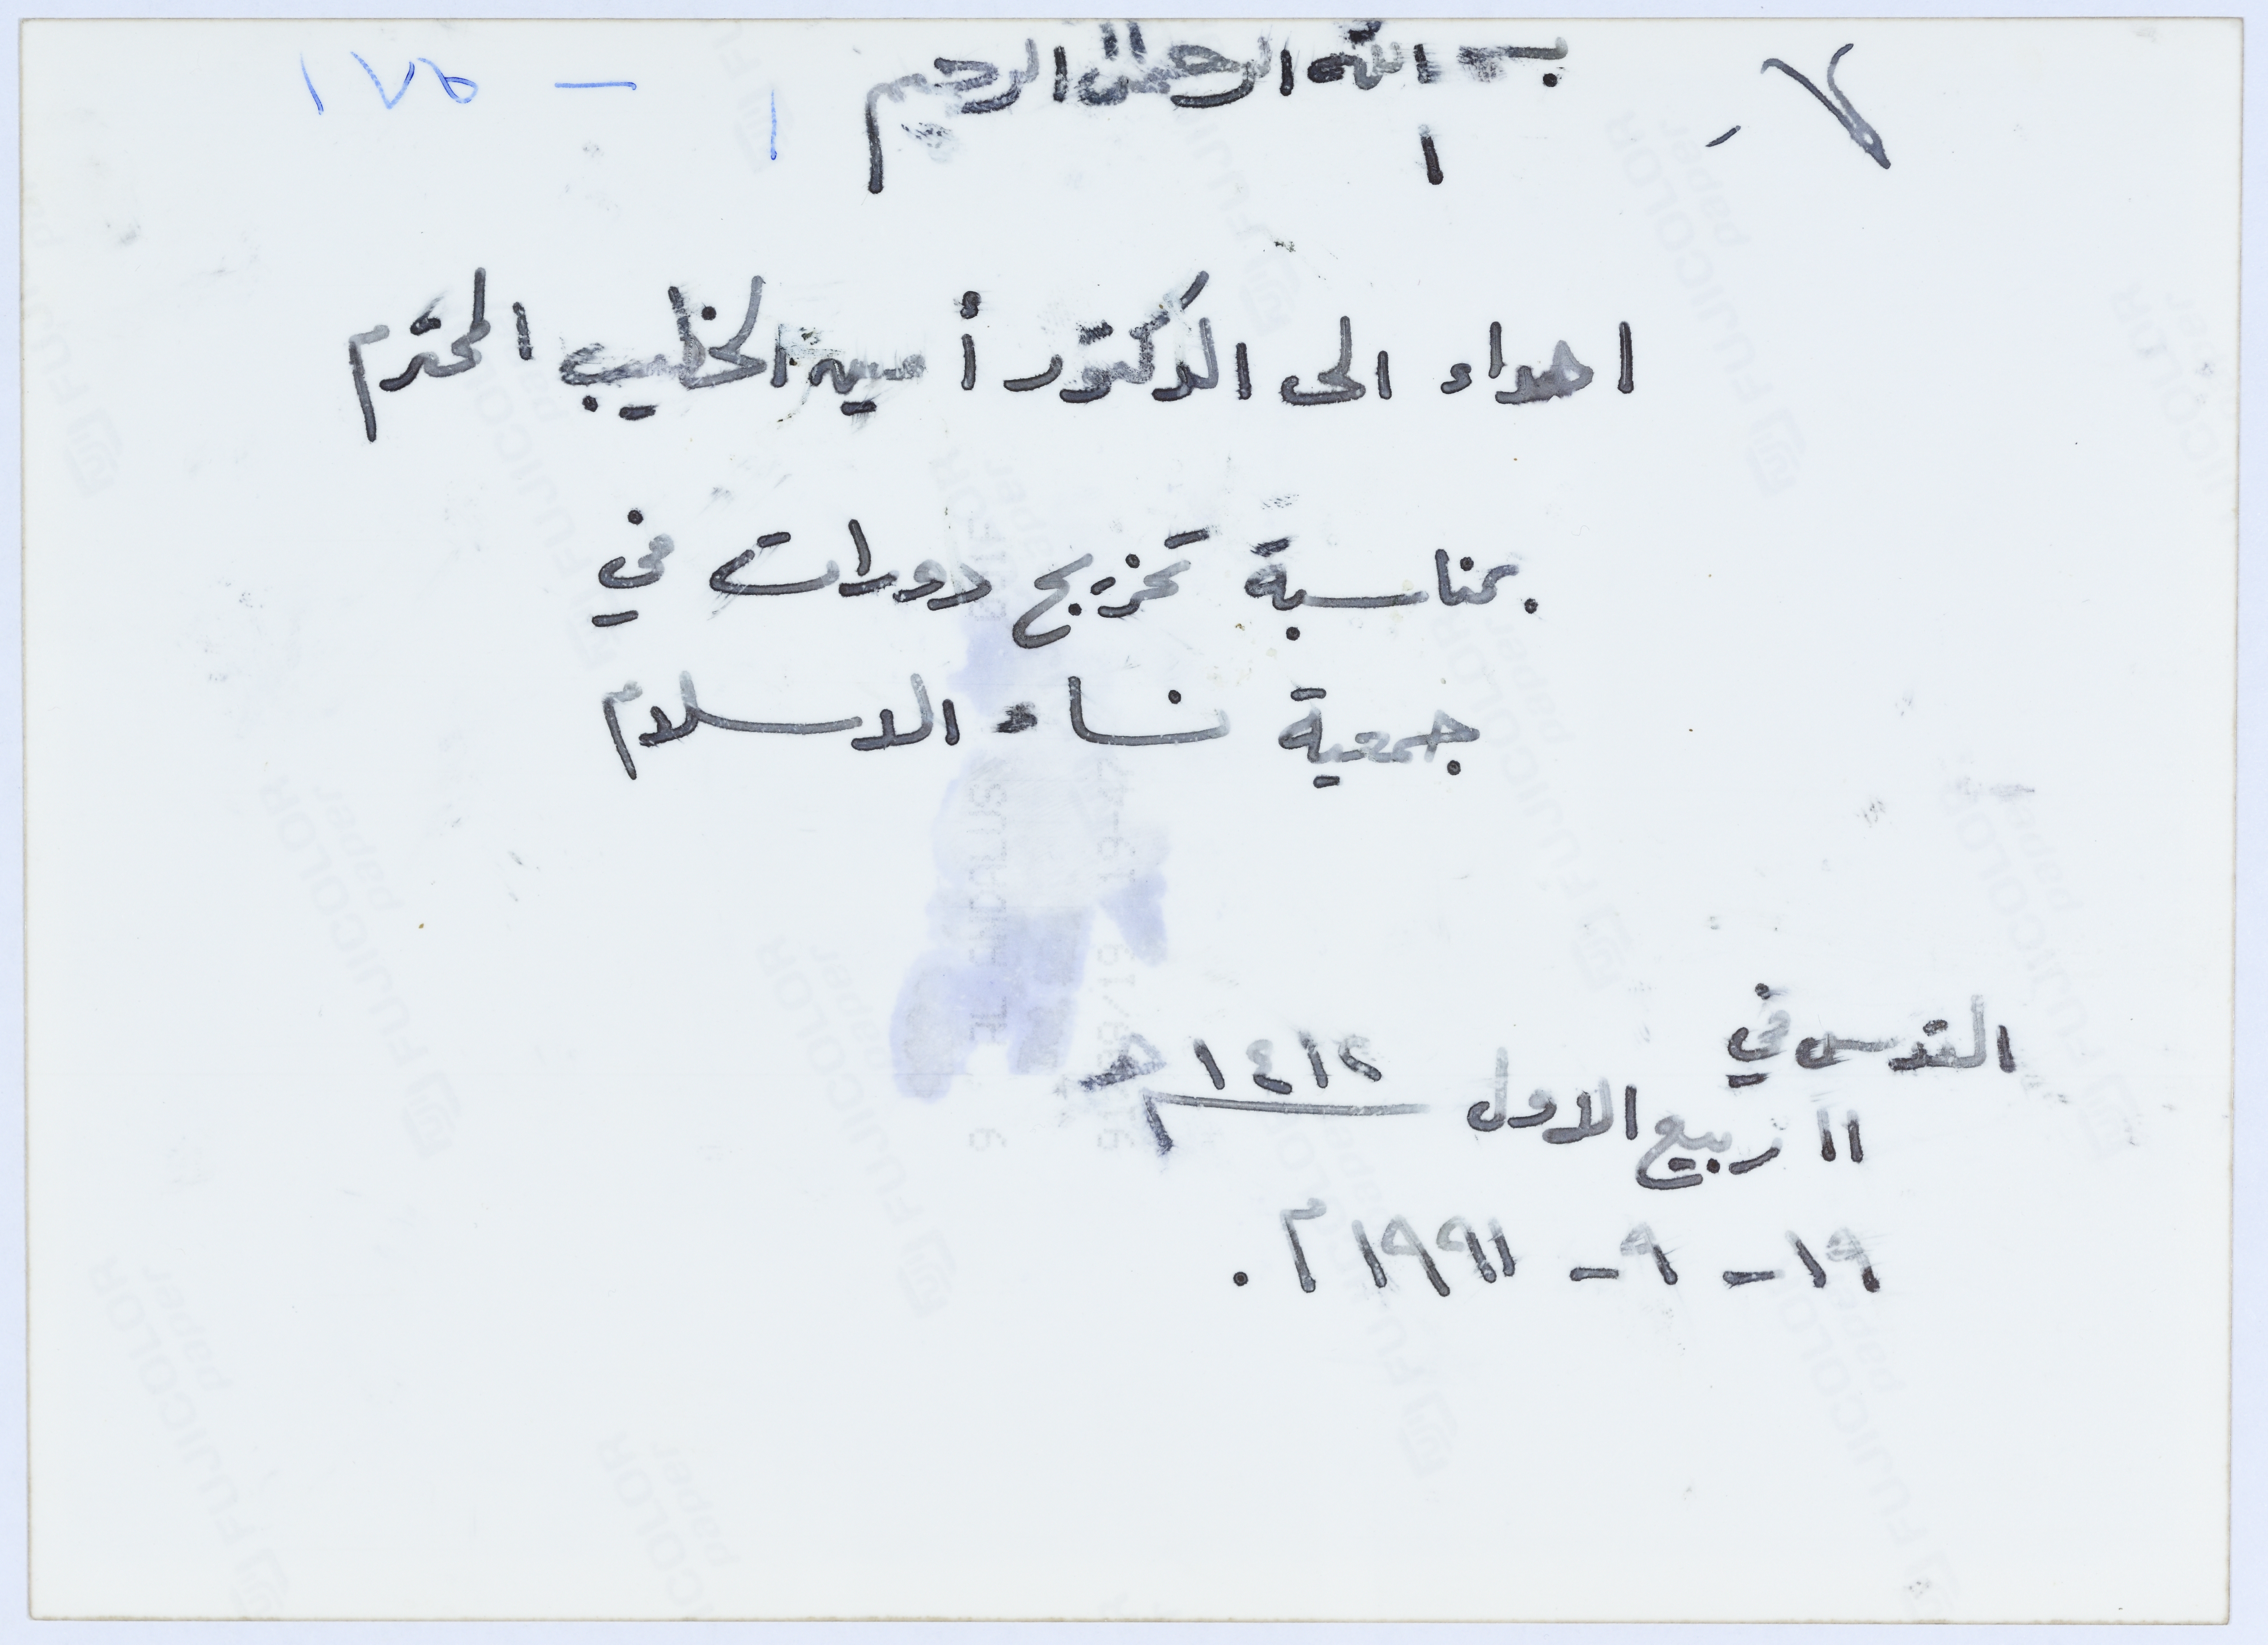 ٧ -
بسم الله الرحمن الرحيم
١٧٥ -
اهداء الى الدكتور أمين الخطيب المحترم
بمناسبة تخريج دورات في
جمعية نساء الاسلام
القدس في
١١ ربيع الاول ١٤١٢ هـ
١٩ - ٩ - ١٩٩١ م.
FUJICOLOR
paper